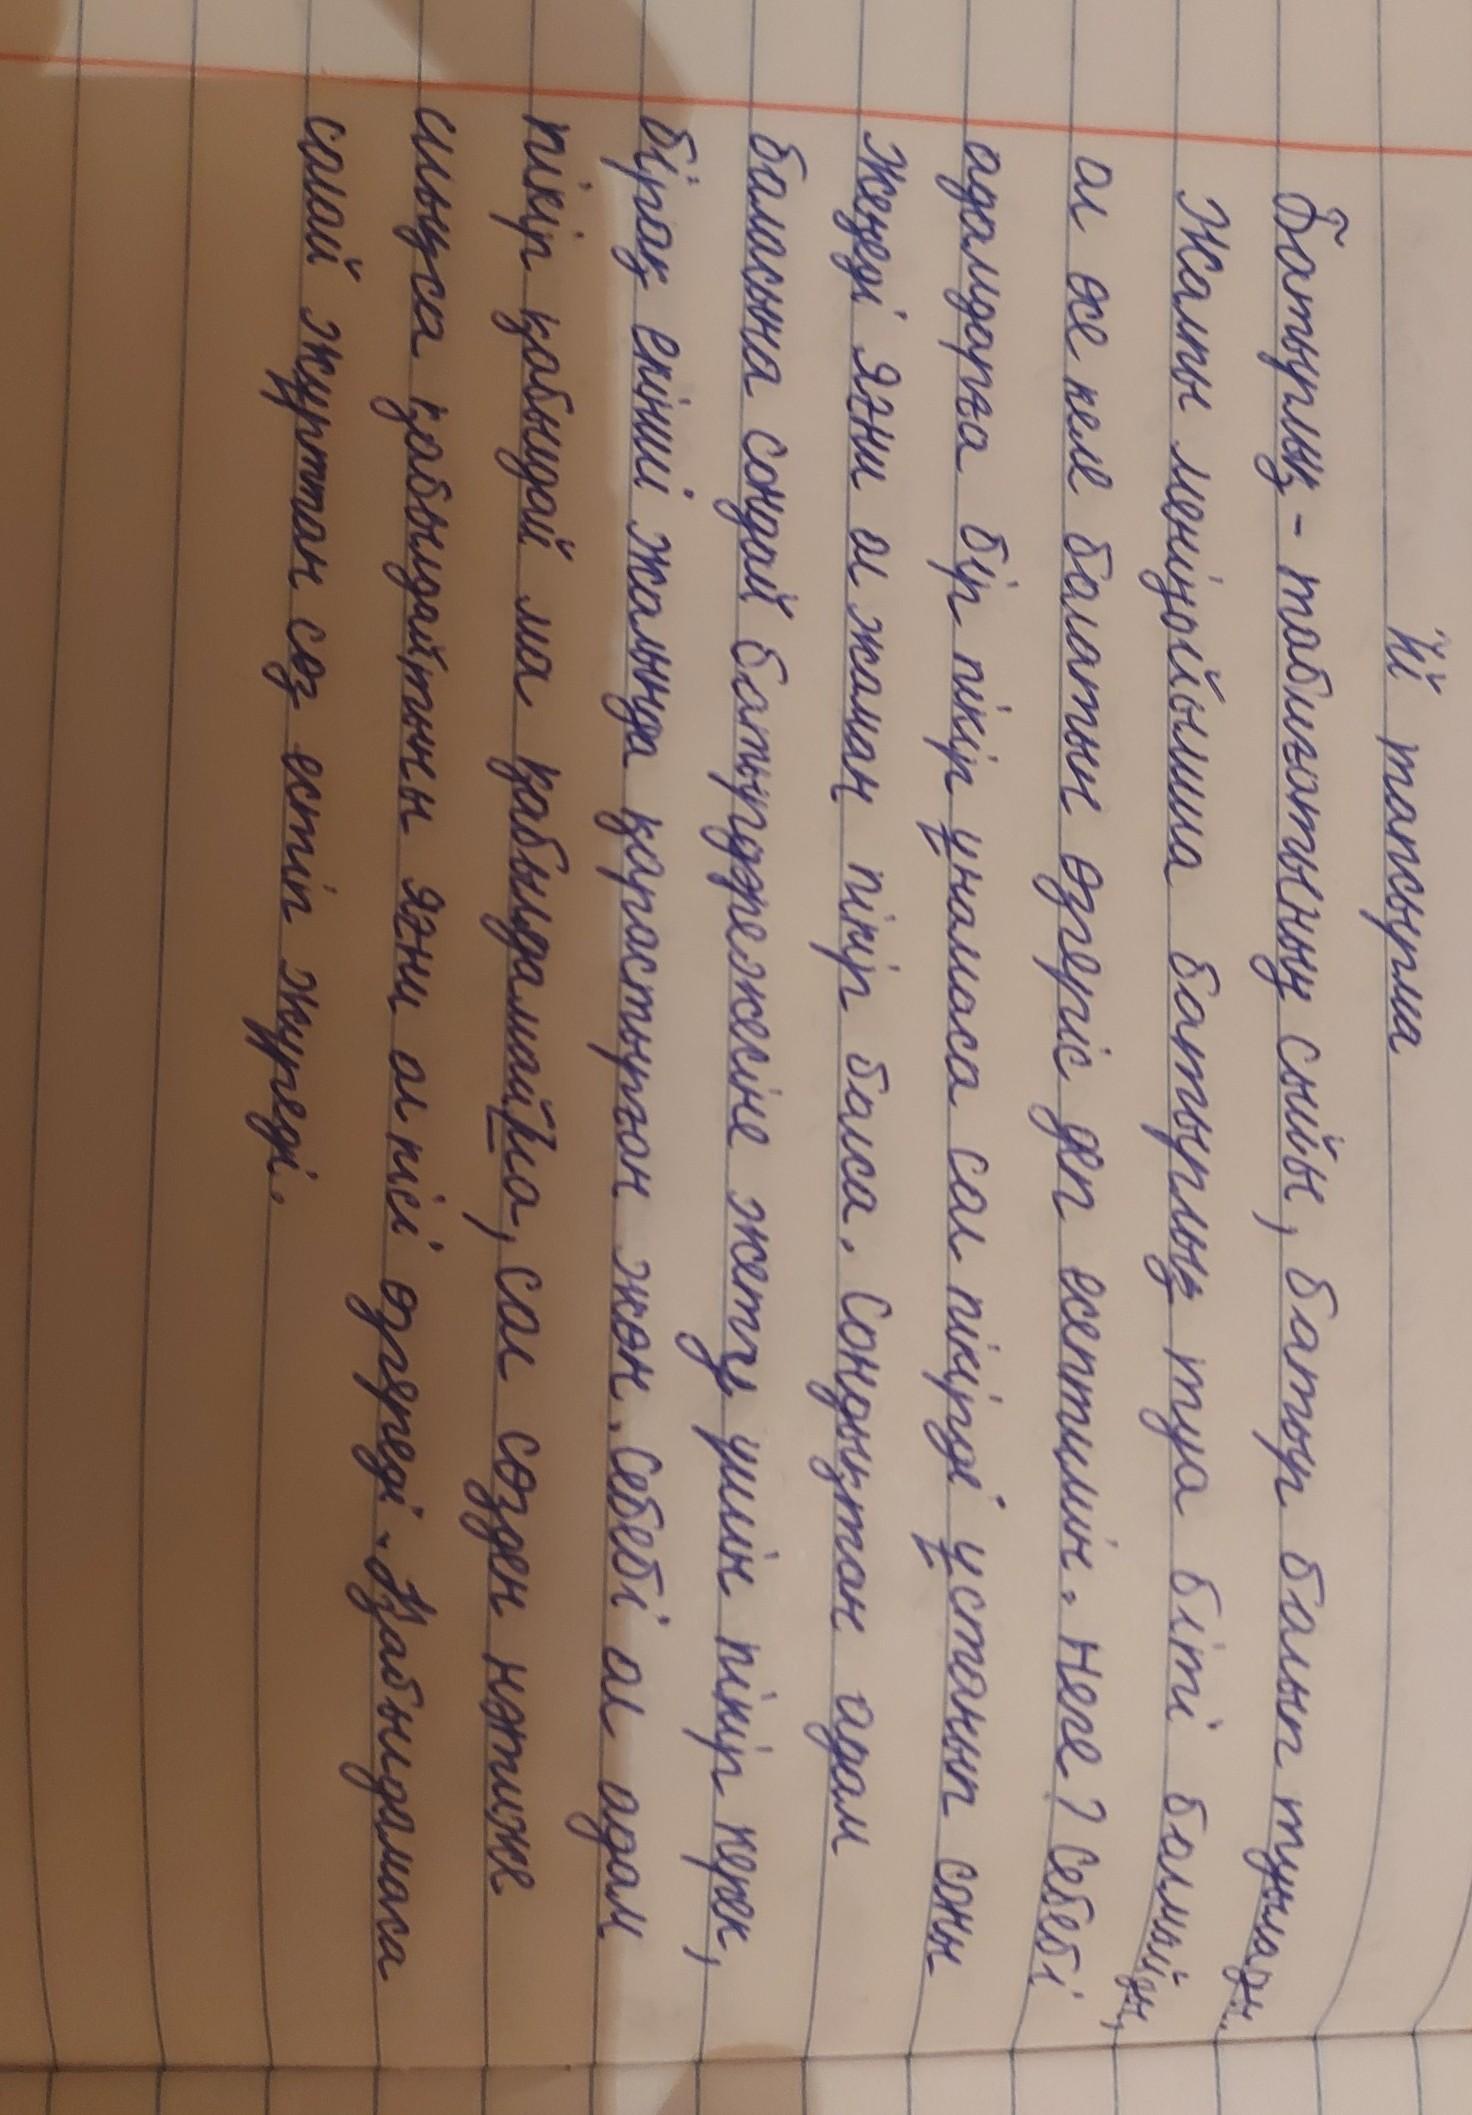 Үй тапсырма
Батырлық - табиғатының сыйы, батыр болып туылады.
Жалпы менің ойымша батырлық туа біті болмайды,
ол осе келе болатын өзгеріс деп есептимін. Неге? Себебі
адамдарға бір пікір ұнамаса сол пікірді ұстанып соны
жеңеді яғни ол жаман пікір болса. Сондықтан адам
баласына сондай батырдәрежесіне жету үшін пікір керек,
бірақ екінші жағында қарастырған жөн. Себебі ол адам
пікір қабылдай ма қабылдамай ма, сол сөзден нәтиже
шықса қабылдайтыны яғни ол кісі өзгереді. Қабылдамаса
солай жұрттан сөз естіп жүреді.